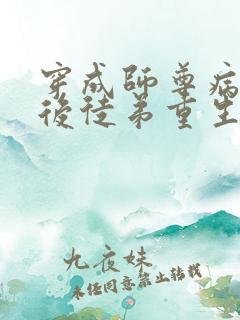 穿成師尊病
後徒弟重生
九夜妹
未经同意禁止转载